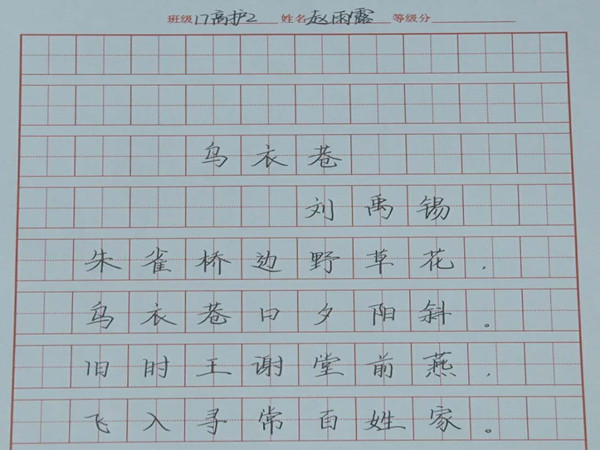 班级 17高护2 姓名 赵雨露 等级分
乌衣巷
刘禹锡
朱雀桥边野草花，
乌衣巷口夕阳斜。
旧时王谢堂前燕，
飞入寻常百姓家。